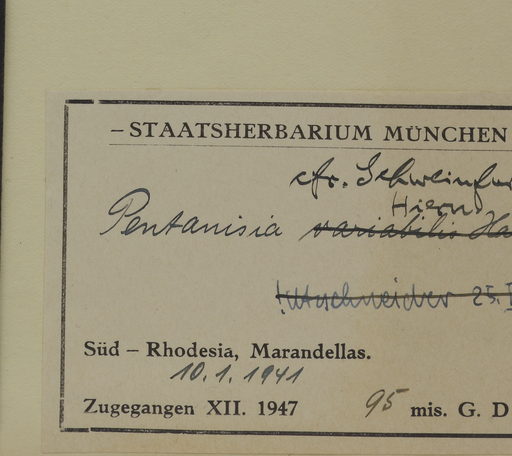 – STAATSHERBARIUM MÜNCHEN
cfr. Schweinfur
Hiern
Pentanisia variabilis Ha
25.
Süd – Rhodesia, Marandellas.
10. 1. 1941
Zugegangen XII. 1947 95 mis. G. D